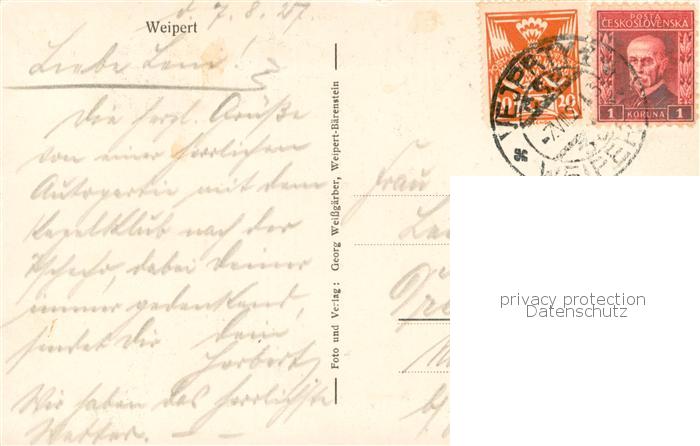 d. 7. 8. 27
Weipert
Liebe Leni!
Die herzl. Grüße
von einer herrlichen
Autopartie mit dem
Kegelklub nach der
Tschecho, dabei Deiner
immer gedenkend,
sendet Dir Dein
Herbert
Wir haben das herrlichste
Wetter.
Foto und Verlag: Georg Weißgärber, Weipert-Bärenstein
POSTA
ČESKOSLOVENSKÁ
1 KORUNA 1
20
WEIPERT
Frau
privacy protection
Datenschutz